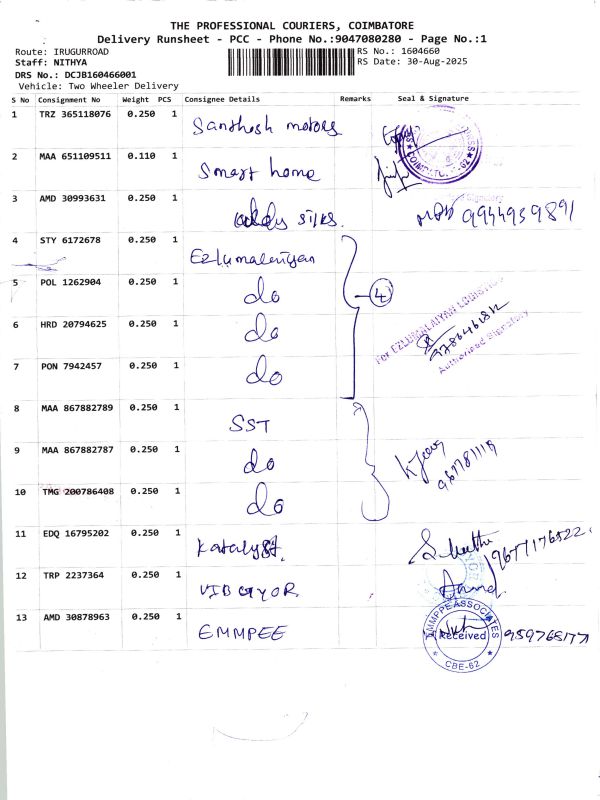 THE PROFESSIONAL COURIERS, COIMBATORE
Delivery Runsheet - PCC - Phone No.:9047080280 - Page No.:1
Route: IRUGURROAD RS No.: 1604660
Staff: NITHYA RS Date: 30-Aug-2025
DRS No.: DCJB160466001
Vehicle: Two Wheeler Delivery
S No Consignment No Weight PCS Consignee Details Remarks Seal & Signature
1 TRZ 365118076 0.250 1 Santhosh motors
2 MAA 651109511 0.110 1 Smart home
3 AMD 30993631 0.250 1 silks. 9944939891
4 STY 6172678 0.250 1 Ezlumalaiyan
5 POL 1262904 0.250 1 do 4
6 HRD 20794625 0.250 1 do
For EZLUMALAIYAN LOGISTICS
Authorised Signatory
7 PON 7942457 0.250 1 do
8 MAA 867882789 0.250 1 SST
9 MAA 867882787 0.250 1 do
10 TMG 200786408 0.250 1 do
11 EDQ 16795202 0.250 1 Katalyst. 9677176522.
12 TRP 2237364 0.250 1 VIBGYOR Anand
13 AMD 30878963 0.250 1 EMMPEE
EMMPPE ASSOCIATES
Received
CBE-62